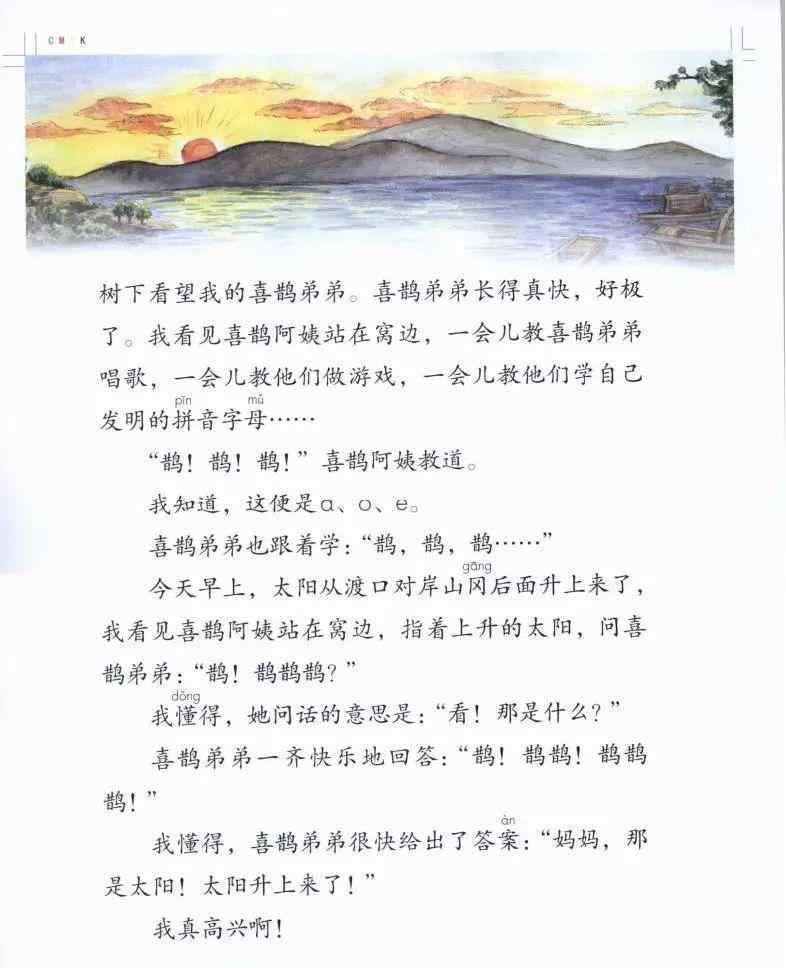 C M K
树下看望我的喜鹊弟弟。喜鹊弟弟长得真快，好极
了。我看见喜鹊阿姨站在窝边，一会儿教喜鹊弟弟
唱歌，一会儿教他们做游戏，一会儿教他们学自己
pīn mǔ
发明的拼音字母……
“鹊！鹊！鹊！”喜鹊阿姨教道。
我知道，这便是ɑ、o、e。
喜鹊弟弟也跟着学：“鹊，鹊，鹊……”
gāng
今天早上，太阳从渡口对岸山冈后面升上来了，
我看见喜鹊阿姨站在窝边，指着上升的太阳，问喜
鹊弟弟：“鹊！鹊鹊鹊？”
dǒng
我懂得，她问话的意思是：“看！那是什么？”
喜鹊弟弟一齐快乐地回答：“鹊！鹊鹊！鹊鹊
鹊！”
àn
我懂得，喜鹊弟弟很快给出了答案：“妈妈，那
是太阳！太阳升上来了！”
我真高兴啊！